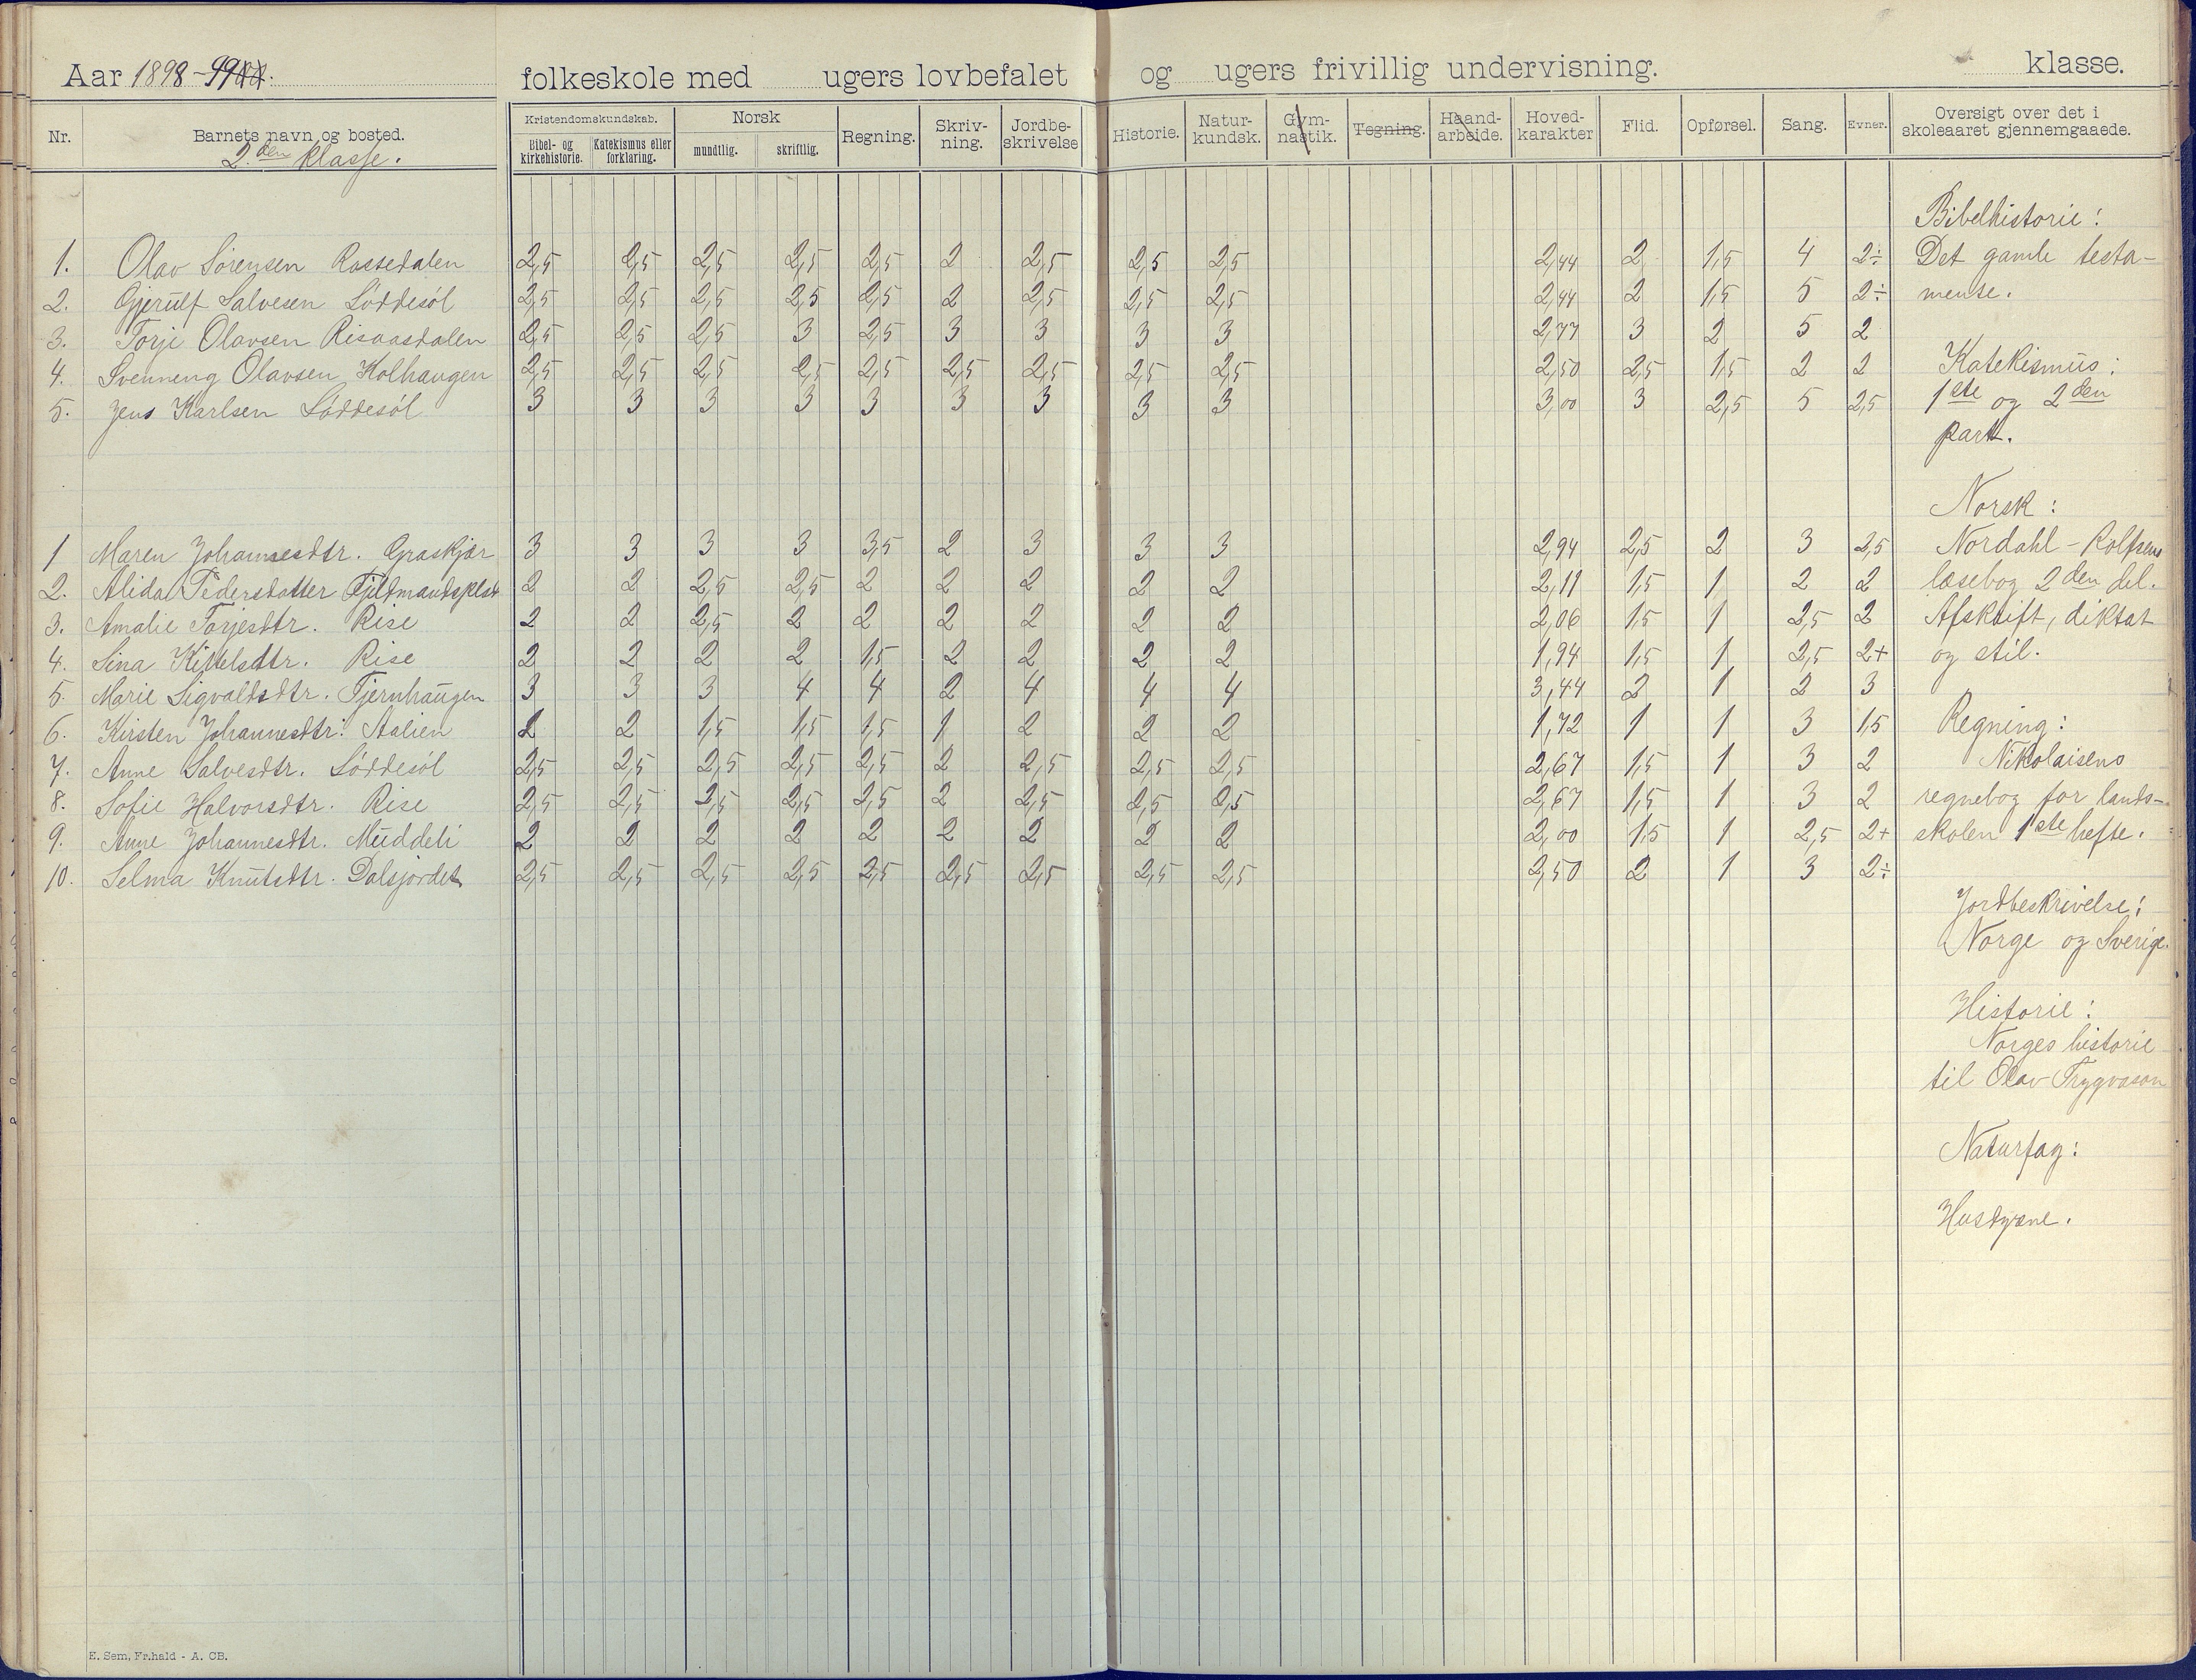 Aar 1898-99
folkeskole med ugers lovbefalet og ugers frivillig undervisning. klasse.
Nr. Barnets navn og bosted. Kristendomskundskab. Norsk Regning. Skriv- Jordbe- Historie. Natur- Gym- Tegning. Haand- Hoved- Flid. Opførsel. Sang. Evner. Oversigt over det i
Bibel- og Katekismus eller mundtlig. skriftlig. ning. skrivelse kundsk. nastik. arbeide. karakter skoleaaret gjennemgaaede.
kirkehistorie. forklaring.
2.den klasse.
Bibelhistorie:
1. Olav Sørensen Rossedalen 2,5 2,5 2,5 2,5 2,5 2 2,5 2,5 2,5 2,44 2 1,5 4 2÷ Det gamle testa-
2. Gjerulf Salvesen Løddesøl 2,5 2,5 2,5 2,5 2,5 2 2,5 2,5 2,5 2,44 2 1,5 5 2÷ mente.
3. Torje Olavsen Risaasdalen 2,5 2,5 2,5 3 2,5 3 3 3 3 2,77 3 2 5 2
4. Svenneng Olavsen Kolhaugen 2,5 2,5 2,5 2,5 2,5 2,5 2,5 2,5 2,5 2,50 2,5 1,5 2 2 Katekismus:
5. Jens Karlsen Løddesøl 3 3 3 3 3 3 3 3 3 3,00 3 2,5 5 2,5 1ste og 2den
part.
Norsk:
1 Maren Johannesdtr. Graskjær 3 3 3 3 3,5 2 3 3 3 2,94 2,5 2 3 2,5 Nordahl-Rolfsens
2. Alida Pedersdatter Fjeldmandsplss 2 2 2,5 2,5 2 2 2 2 2 2,11 1,5 1 2 2 læsebog 2den del.
3. Amalie Torjesdtr. Rise 2 2 2,5 2 2 2 2 2 2 2,06 1,5 1 2,5 2 Afskrift, diktat
4. Sina Kittelsdtr. Rise 2 2 2 2 1,5 2 2 2 2 1,94 1,5 1 2,5 2+ og stil.
5. Marie Sigvaldsdtr. Tjernhaugen 3 3 3 4 4 2 4 4 4 3,44 2 1 2 3
6. Kirsten Johannesdtr. Aalien 2 2 1,5 1,5 1,5 1 2 2 2 1,72 1 1 3 1,5 Regning:
7. Anne Salvesdtr. Løddesøl 2,5 2,5 2,5 2,5 2,5 2 2,5 2,5 2,5 2,67 1,5 1 3 2 Nikolaisens
8. Sofie Halvorsdtr. Rise 2,5 2,5 2,5 2,5 2,5 2 2,5 2,5 2,5 2,67 1,5 1 3 2 regnebog for lands-
9. Anne Johannesdtr. Muddeli 2 2 2 2 2 2 2 2 2 2,00 1,5 1 2,5 2+ skolen 1ste hefte.
10. Selma Knutsdtr. Dalsjordet 2,5 2,5 2,5 2,5 2,5 2,5 2,5 2,5 2,5 2,50 2 1 3 2÷
Jordbeskrivelse:
Norge og Sverige.
Historie:
Norges historie
til Olav Trygvason
Naturfag:
Husdyrene.
E. Sem, Fr.hald - A. CB.